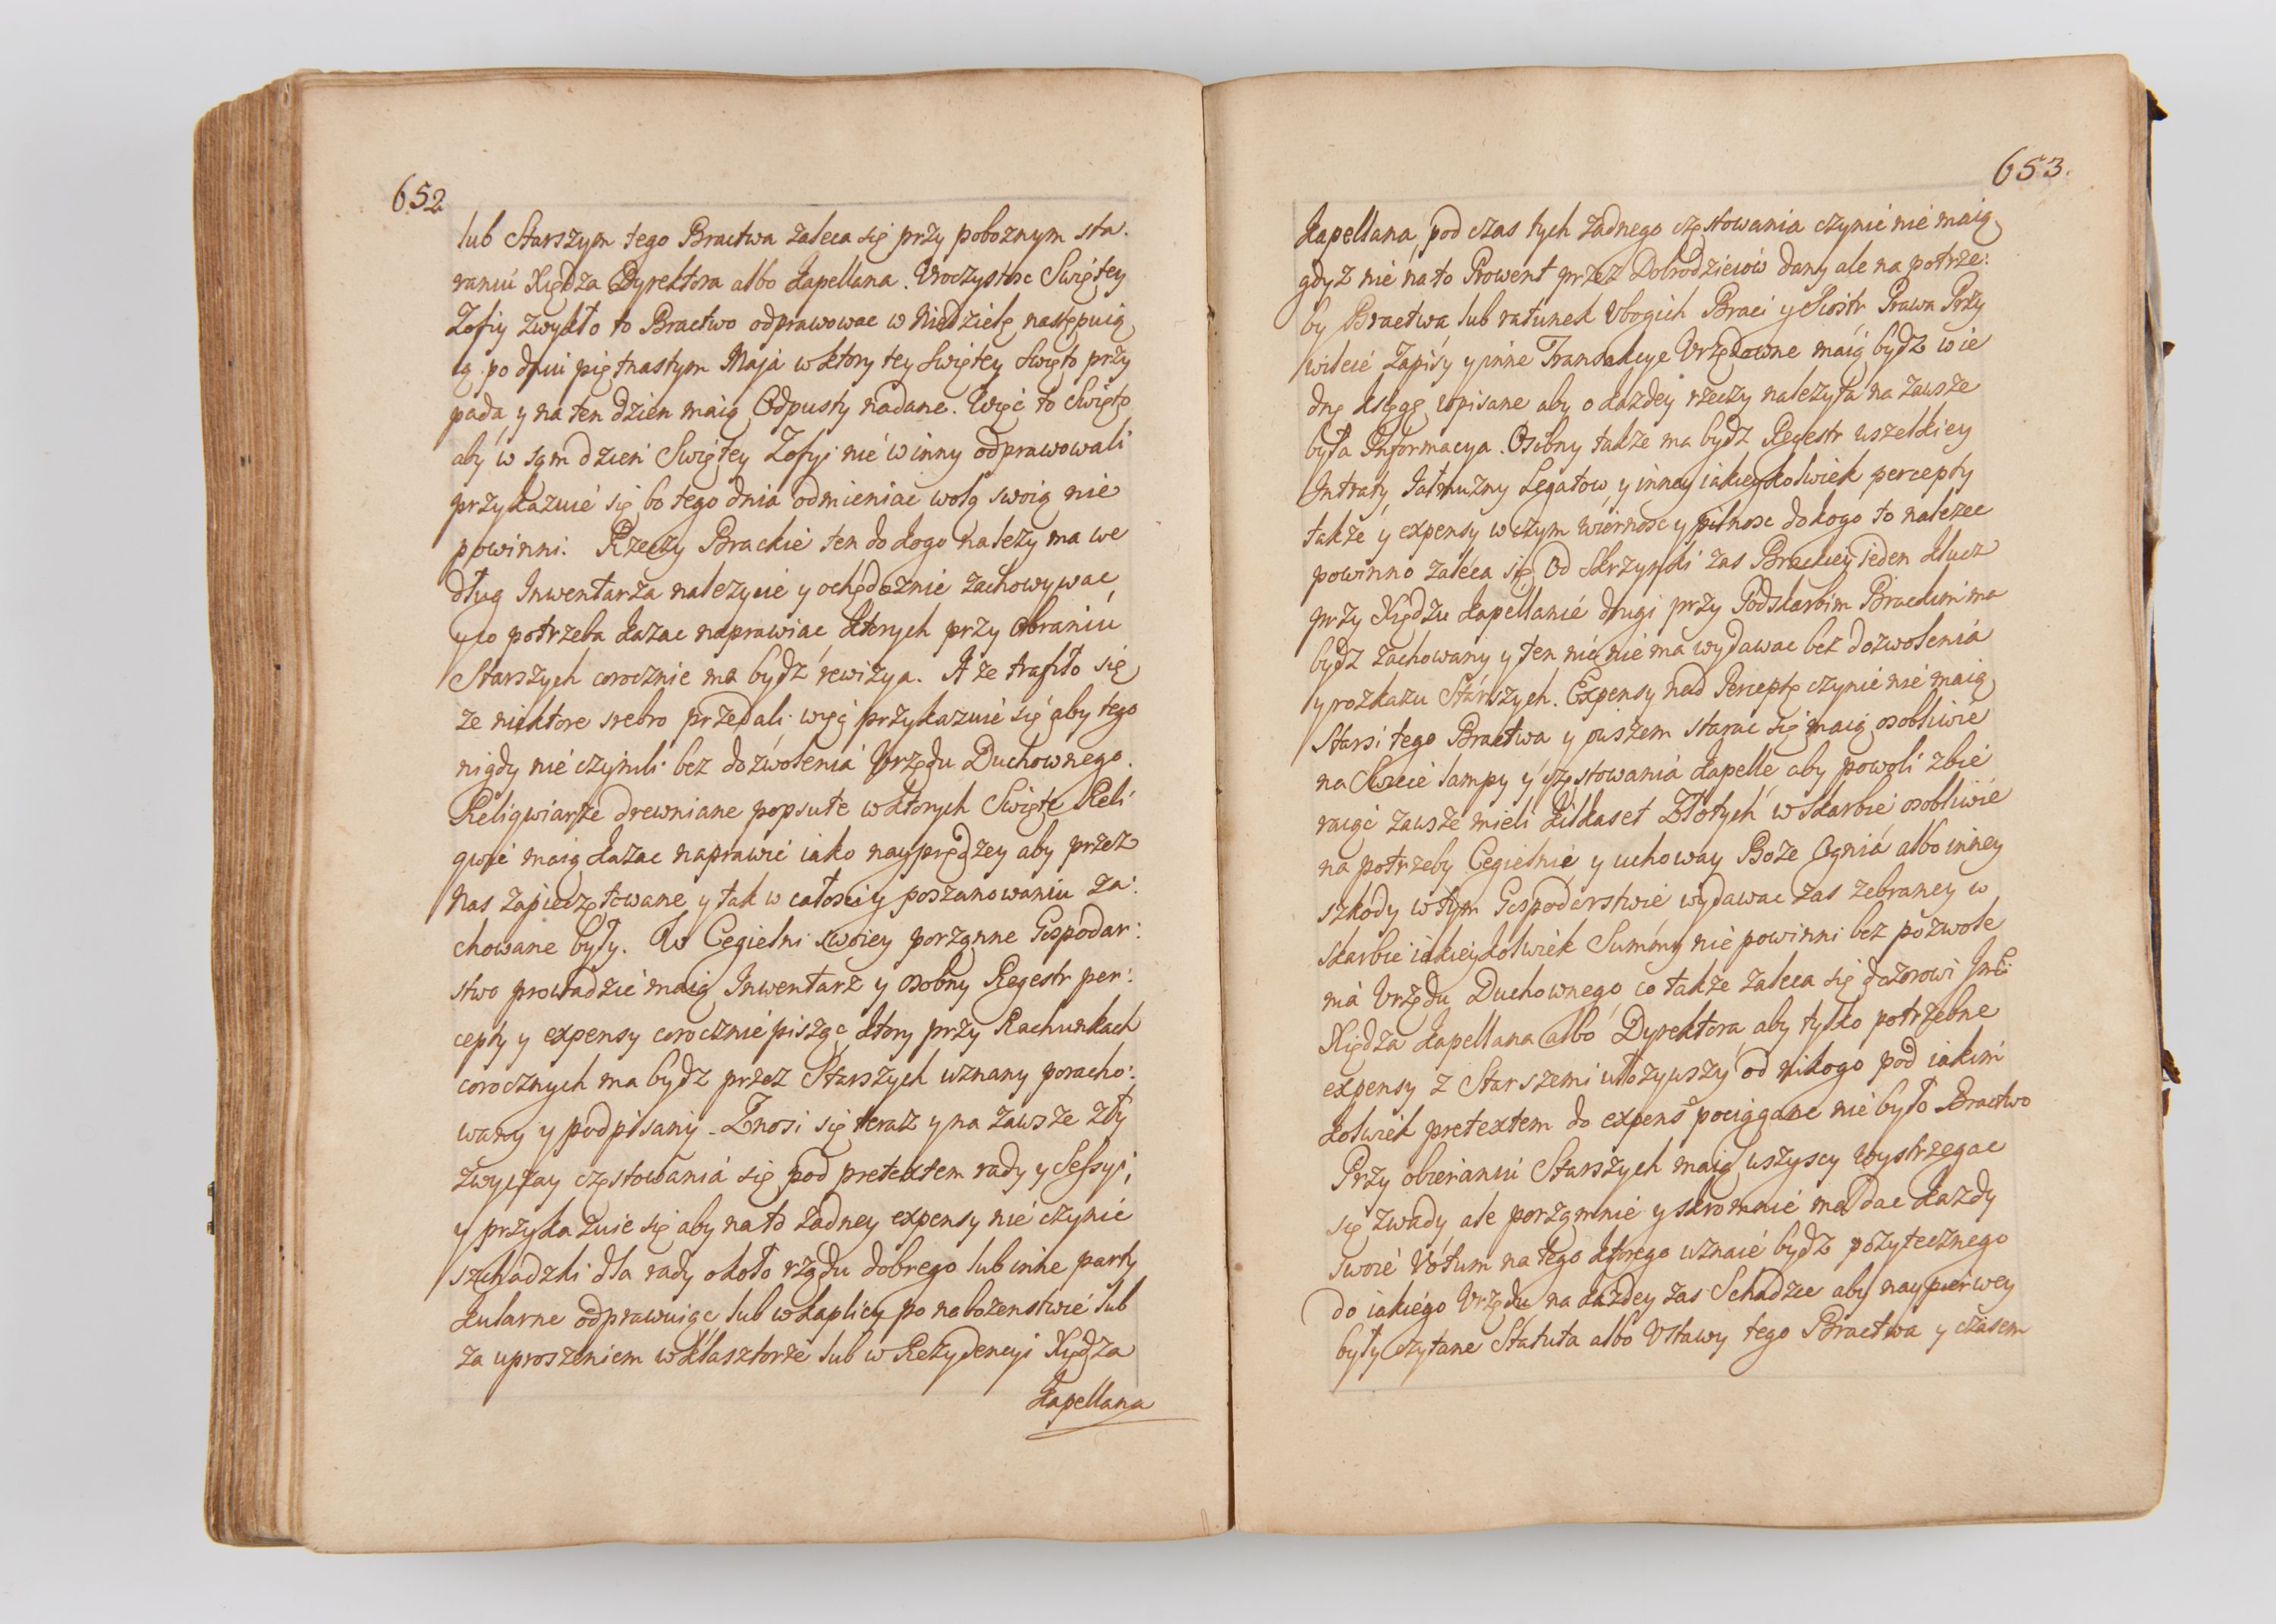 652
lub Starszym tego Bractwa zaleca się przy poboznym sta:
raniu Xiędza Dyrektora albo Kapellana. Uroczystosc Swiętey
Zofiy zwykło to Bractwo odprawowac w Niedzielę następuią
cą po dniu piętnastym Maja w ktory tey Swiętey Swięto przy
pada y na ten dzien maią Odpusty nadane. Więc to Swięto
aby w sąm dzień Swiętey Zofyi nie w inny odprawowali
przykazuie się bo tego dnia odmieniac wolą swoią nie
powinni. Rzeczy Brackie ten do kogo nalezy ma we
dług Inwentarza nalezycie y ochędoznie zachowywac,
y co potrzeba kazac naprawiac, ktorych przy Obraniu
Starszych corocznie ma bydz rewizya. A ze trafiło się
ze niektore srebro przedali, więc przykazuie się aby tego
nigdy nie czynili bez dozwolenia Urzędu Duchownego.
Religwiarze drewniane popsute w ktorych Swięte Reli
qwie maią kazac naprawić iako nayprędzey aby przez
nas zapieczętowane y tak w całosci y poszanowaniu za:
chowane były. W Cegielni swoiey porządne Gospodar:
stwo prowadzić maią Inwentarz y osobny Regestr per:
cepty y expensy corocznie pisząc, ktory przy Rachunkach
corocznych ma bydz przez Starszych uznany poracho:
wany y podpisany. Znosi się teraz y na zawsze zły
zwyczay częstowania się pod pretextem rady y Sessyi,
y przykazuie się aby na to zadney expensy nie czynić
schadzki dla rady około rządu dobrego lub inne party
kularne odprawuiąc lub w kaplicy po nabozenstwie lub
za uproszeniem w klasztorze lub w Rezydencyi Xiędza
Kapellana
653.
Kapellana, pod czas tych zadnego częstowania czynić nie maią
gdyz nie na to Prowent przez Dobrodzieiów dany ale na potrze:
by Bractwa lub ratunek Ubogich Braci y Siostr Prawa Przy
wileie Zapisy y inne Transakcye Urzędowne maią bydz w ie
dnę księgę wpisane aby o kazdey rzeczy nalezyta na zawsze
była Informacya. Osobny takze ma bydz Regestr wszelkiey
Intraty Jałmuzny Legatow, y inney iakieykolwiek percepty
takze y expensy w czym wiernosc y pilnosc do kogo to nalezec
powinno zaleca się. Od Skrzynki zas Brackiey ieden klucz
przy Xiędzu Kapellanie drugi przy Podskarbim Brackim ma
bydz zachowany y ten nic nie ma wydawac bez dozwolenia
y rozkazu Starszych. Expensy nad Perceptę czynić nie maią
Starsi tego Bractwa y owszem starac się maią osobliwie
na Swiece lampy y częstowania kapelle, aby powoli zbie
raiąc zawsze mieli kilkaset Złotych w skarbie osobliwie
na potrzeby Cegielnie y uchoway Boze Ognia albo inney
szkody w tym Gospodarstwie, wydawac zas zebraney w
skarbie iakieykolwiek Summy nie powinni bez pozwole
nia Urzędu Duchownego, co takze zaleca się dozorowi Jmci
Xiędza Kapellana albo Dyrektora, aby tylko potrzebne
expensy z Starszemi ułozywszy od nikogo pod iakim
kolwiek pretextem do expens pociągane nie było Bractwo
Przy obieraniu Starszych maią wszyscy wystrzegac
się zwady ale porządnie y skromnie ma dac kazdy
swoie Votum na tego ktorego uznaie bydz pozytecznego
do iakiego Urzędu na kazdey zas Schadzce aby naypierwey
były czytane Statuta albo Ustawy tego Bractwa y czasem